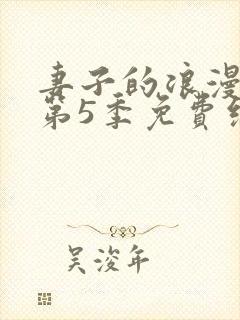 妻子的浪漫
第5季免費
吴浚年